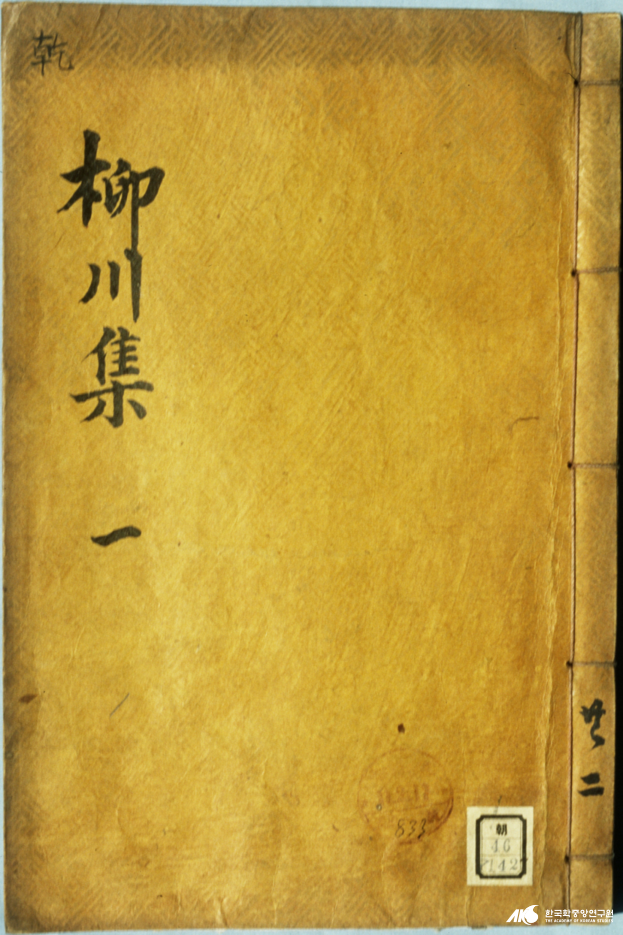 乾
柳川集 一
共二
533
朝
46
한국학중앙연구원
THE ACADEMY OF KOREAN STUDIES